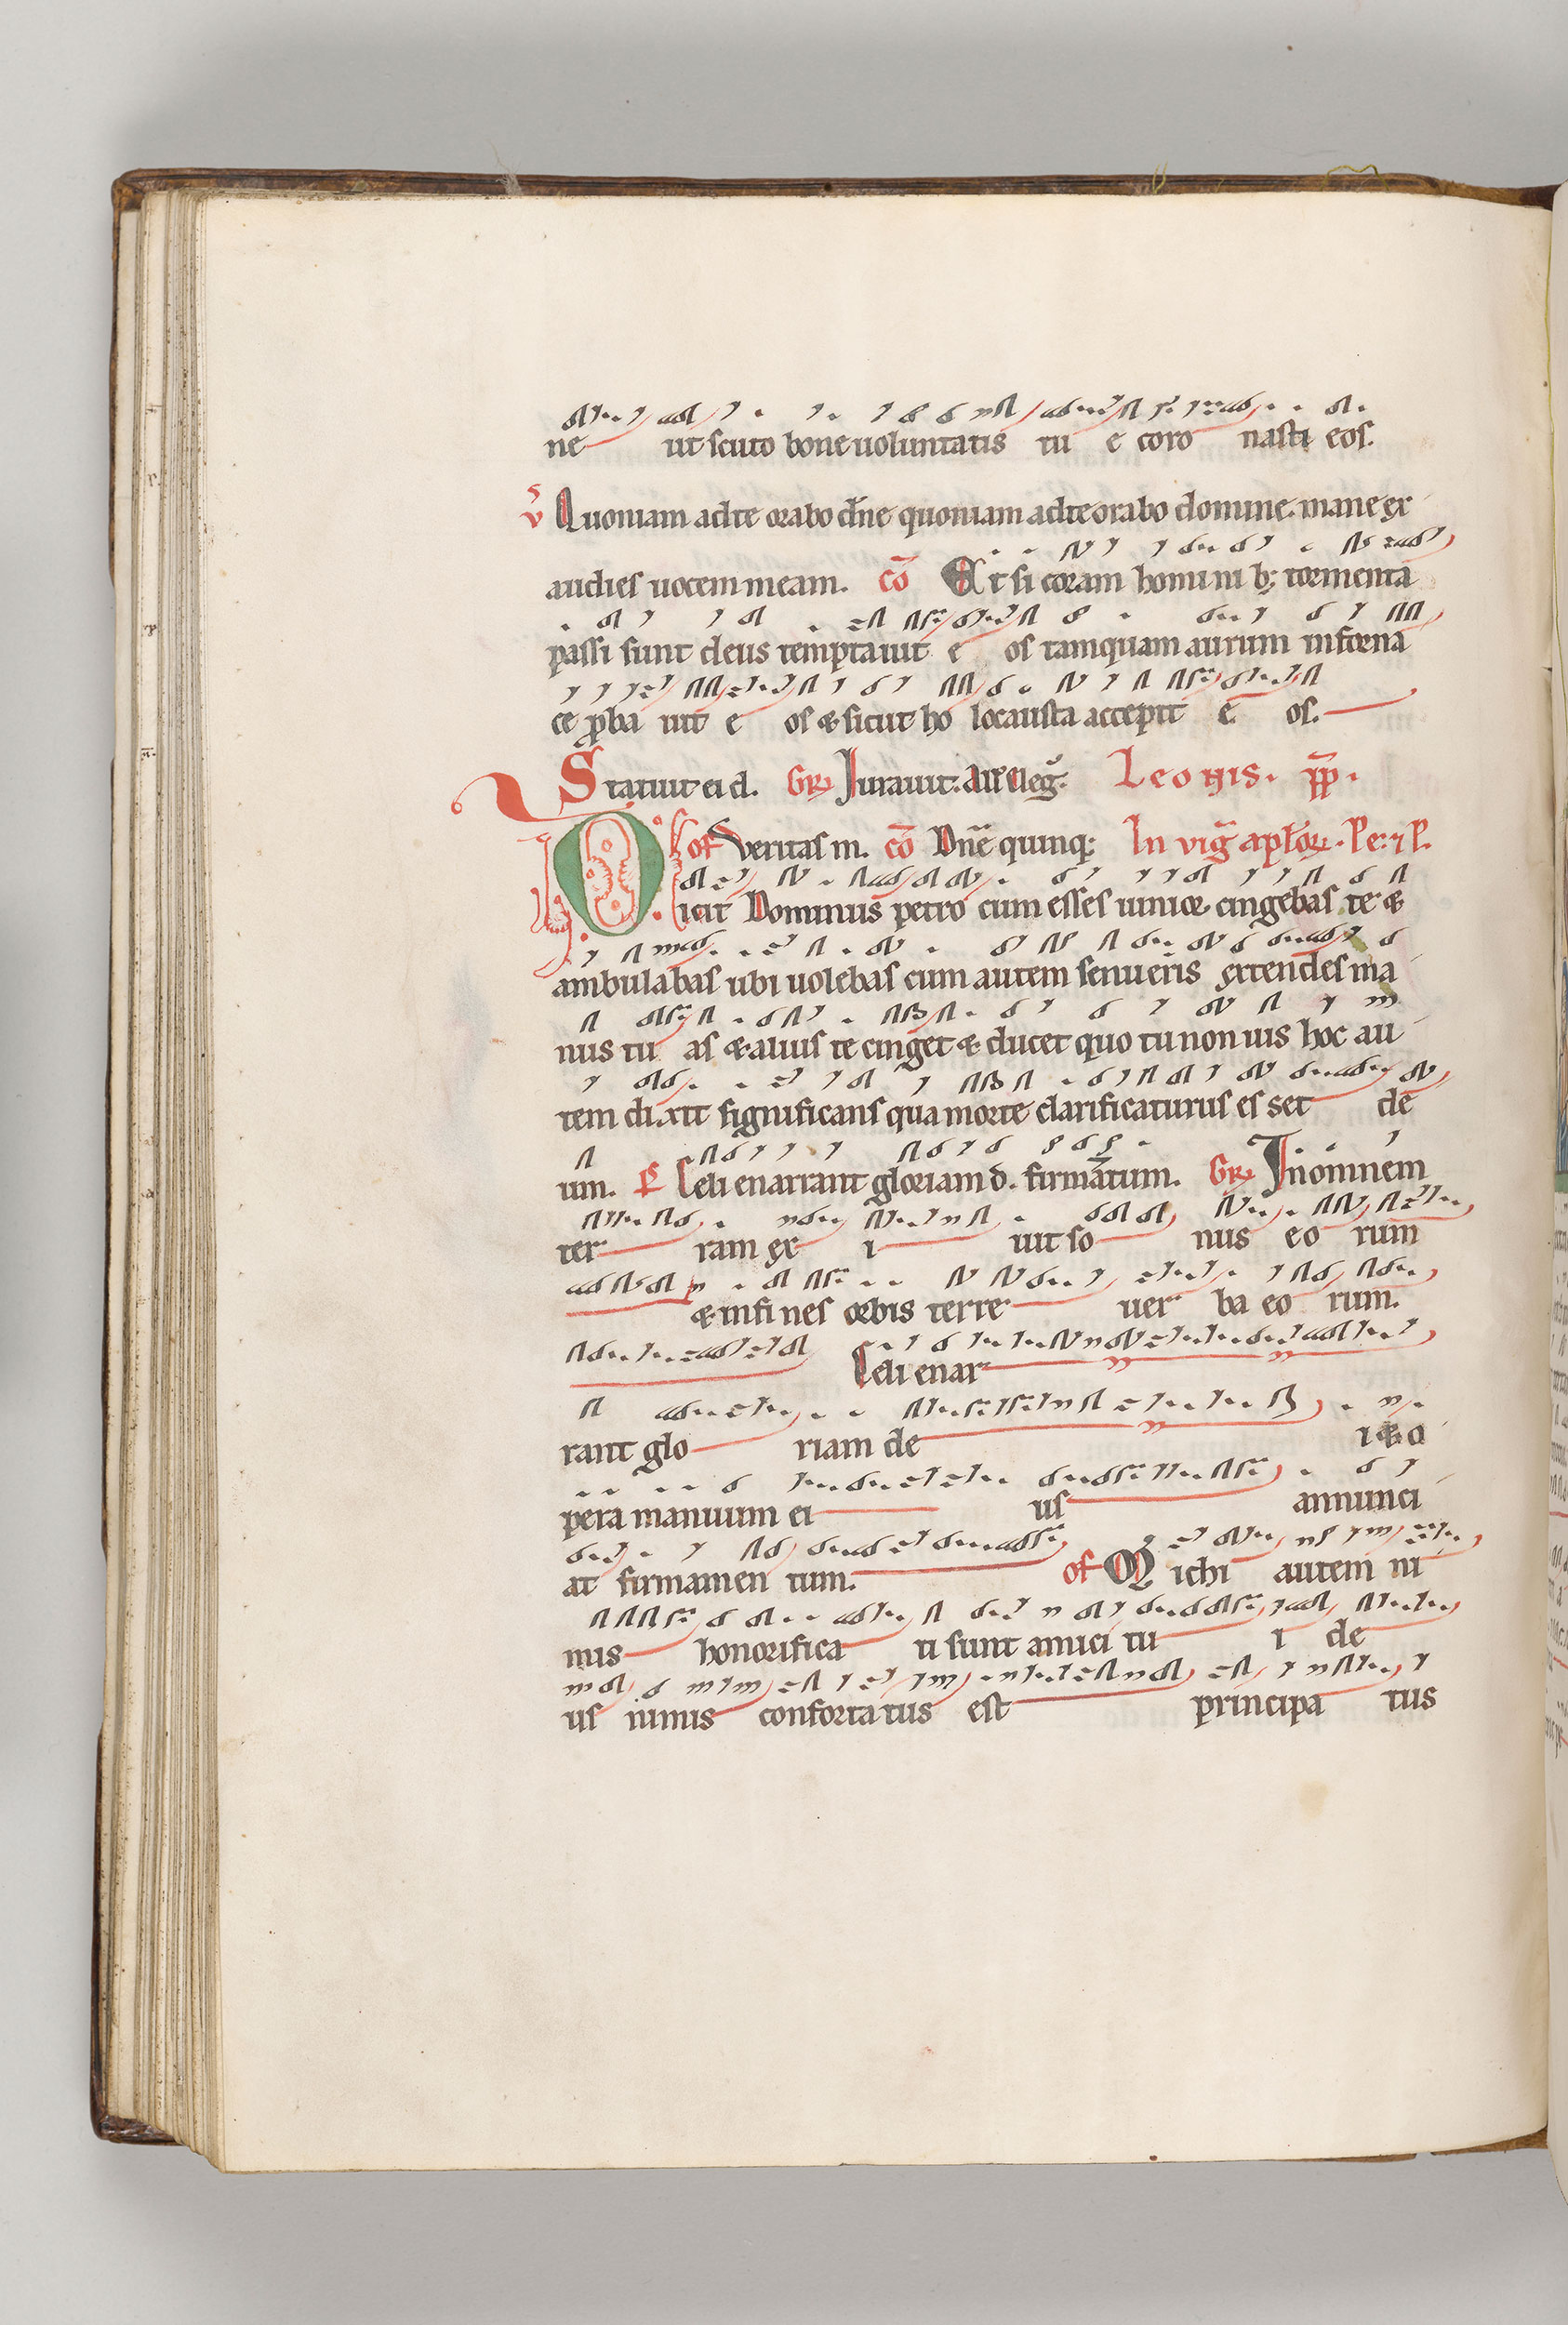 ne ut scuto bone uoluntatis tu e coro nasti eos.
v̄ Quoniam ad te orabo dn̄e quoniam ad te orabo domine. mane ex
audies uocem meam. cō Et si coram homini b; tormenta
passi sunt deus temptauit e os tamquam aurum in forna
ce ꝓba uit e os & sicut ho locausta accepit e os.
Statuit ei d. GR Iurauit. Leonis. pp̄.
of Veritas m. cō Dn̄e quinq; In viḡ apl̄oꝝ. Pe: ⁊ P.
Dicit Dominus petro cum esses iunior cingebas te &
ambulabas ubi uolebas cum autem senueris extendes ma
nus tu as & alius te cinget & ducet quo tu non uis hoc au
tem dixit significans qua morte clarificaturus es set de
um. P̄ Celi enarrant gloriam d. firmātum. GR In omnem
ter ram ex i uit so nus eo rum
& in fi nes orbis terre uer ba eo rum.
Celi enar
rant glo riam de i & o
pera manuum ei us annunci
at firmamen tum. of Michi autem ni
mis honorifica ti sunt amici tu i de
us nimis conforta tus est principa tus